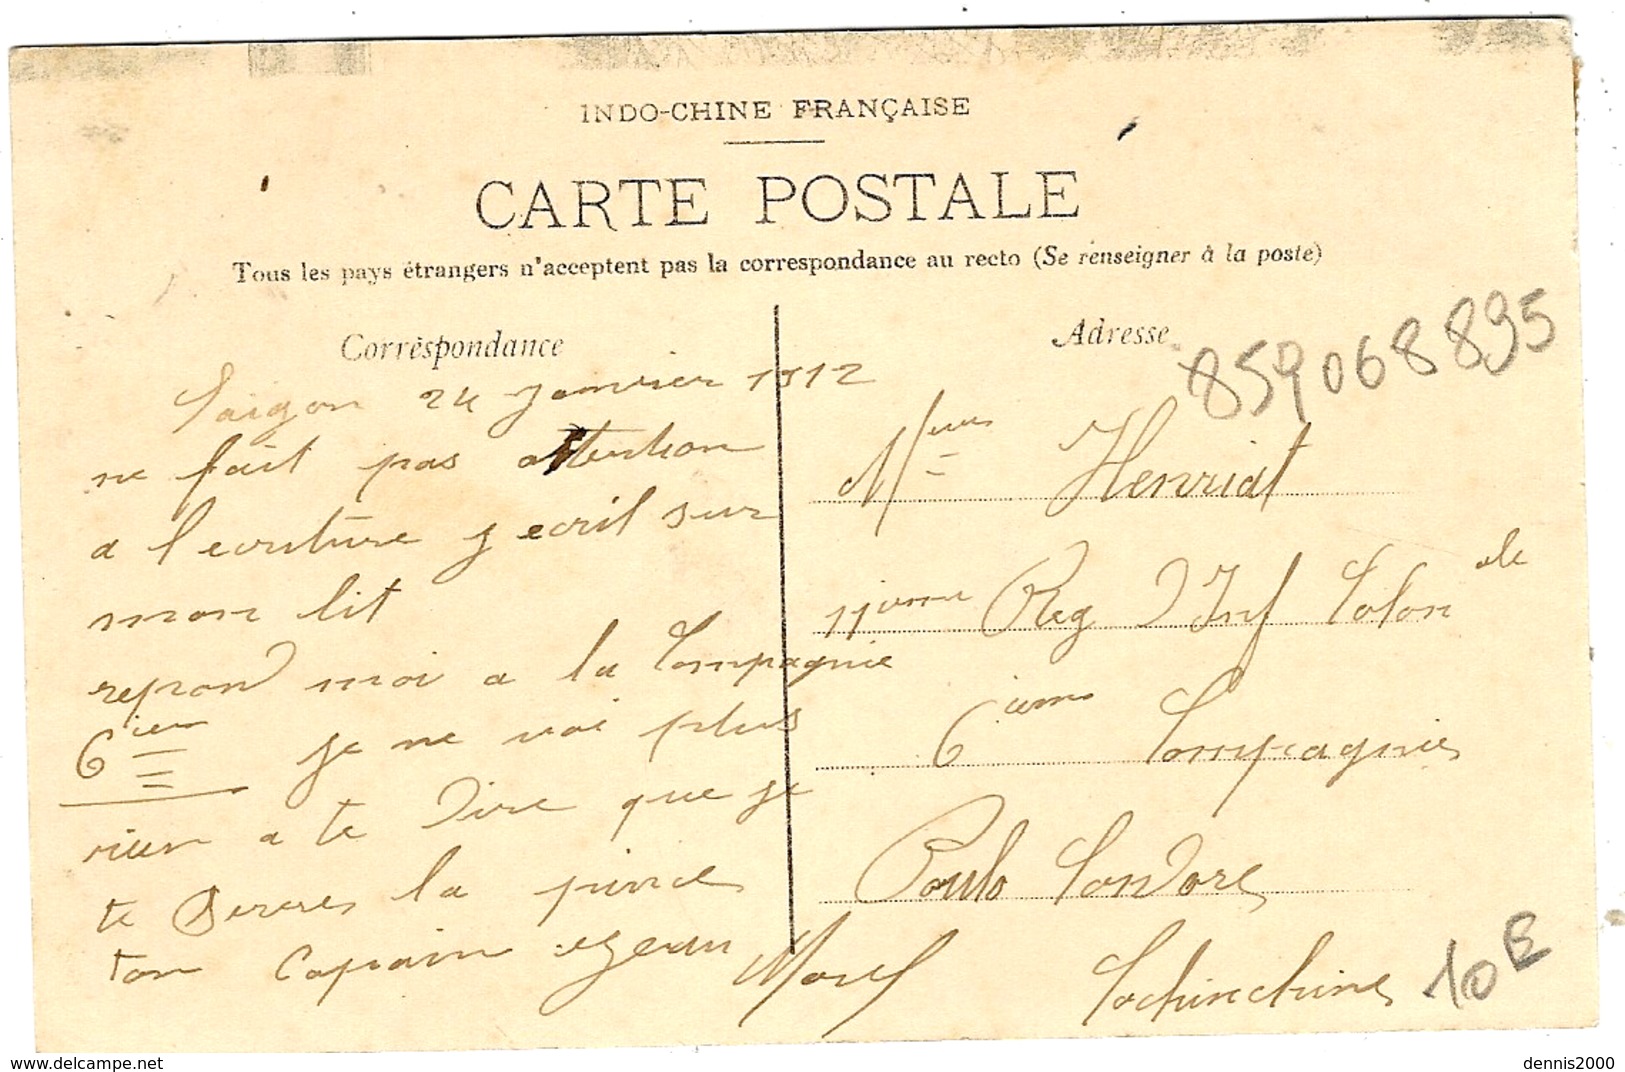 INDO-CHINE FRANÇAISE
CARTE POSTALE
Tous les pays étrangers n'acceptent pas la correspondance au recto (Se renseigner à la poste)
Correspondance
Saigon 24 Janvier 1912
ne fait pas attention
a l ecriture j ecrit sur
mon lit
repond moi a la Compagnie
6ieme je ne voi plus
rien a te Dire que je
te serres la pinces
ton Copain Jean Morel
Adresse
859068895
Henriat
11ieme Reg D Inf Colon ale
6ieme Compagnies
Poulo Condore
Cochinchine
10E
delcampe.net
dennis2000